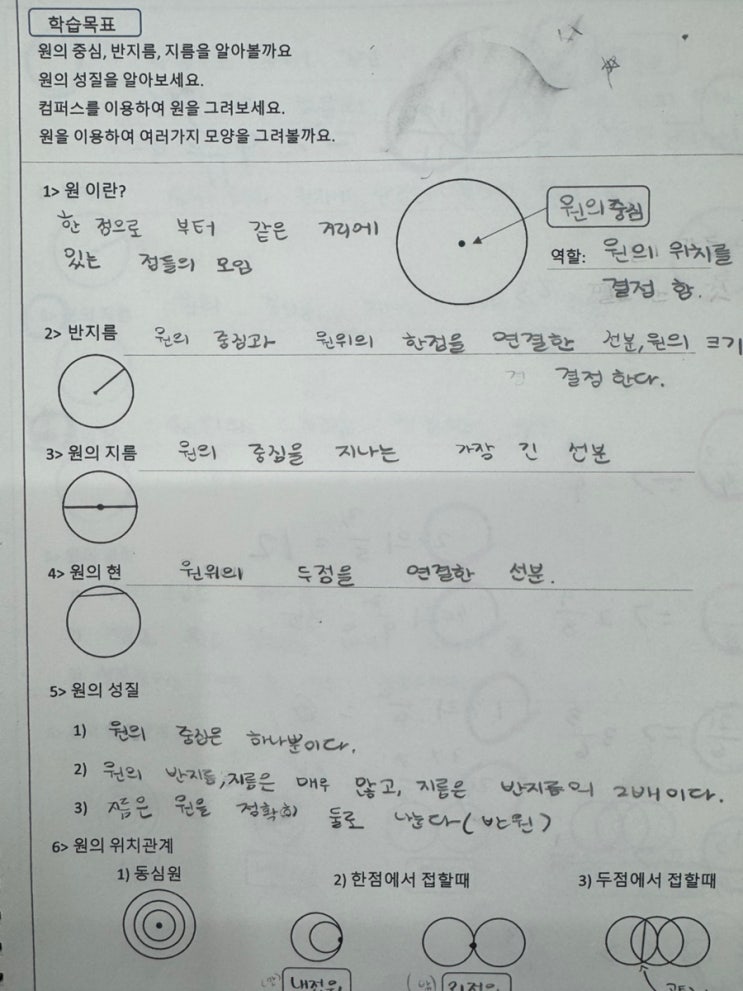 학습목표
원의 중심, 반지름, 지름을 알아볼까요
원의 성질을 알아보세요.
컴퍼스를 이용하여 원을 그려보세요.
원을 이용하여 여러가지 모양을 그려볼까요.
1> 원 이란?
한 점으로 부터 같은 거리에
있는 점들의 모임
원의 중심
역할: 원의 위치를
결정 함.
2> 반지름 원의 중심과 원위의 한점을 연결한 선분, 원의 크기
결정 한다.
3> 원의 지름 원의 중심을 지나는 가장 긴 선분
4> 원의 현 원위의 두점을 연결한 선분.
5> 원의 성질
1) 원의 중심은 하나뿐이다.
2) 원의 반지름, 지름은 매우 많고, 지름은 반지름의 2배이다.
3) 지름은 원을 정확히 둘로 나눈다 (반원)
6> 원의 위치관계
1) 동심원
2) 한점에서 접할때
3) 두점에서 접할때